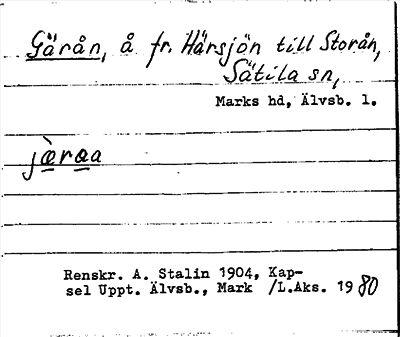 Gärån, å fr. Härsjön till Storån,
Sätila sn,
Marks hd, Älvsb. l.
jæ̀raa
Renskr. A. Stalin 1904, Kap-
sel Uppt. Älvsb., Mark /L.Aks. 1980